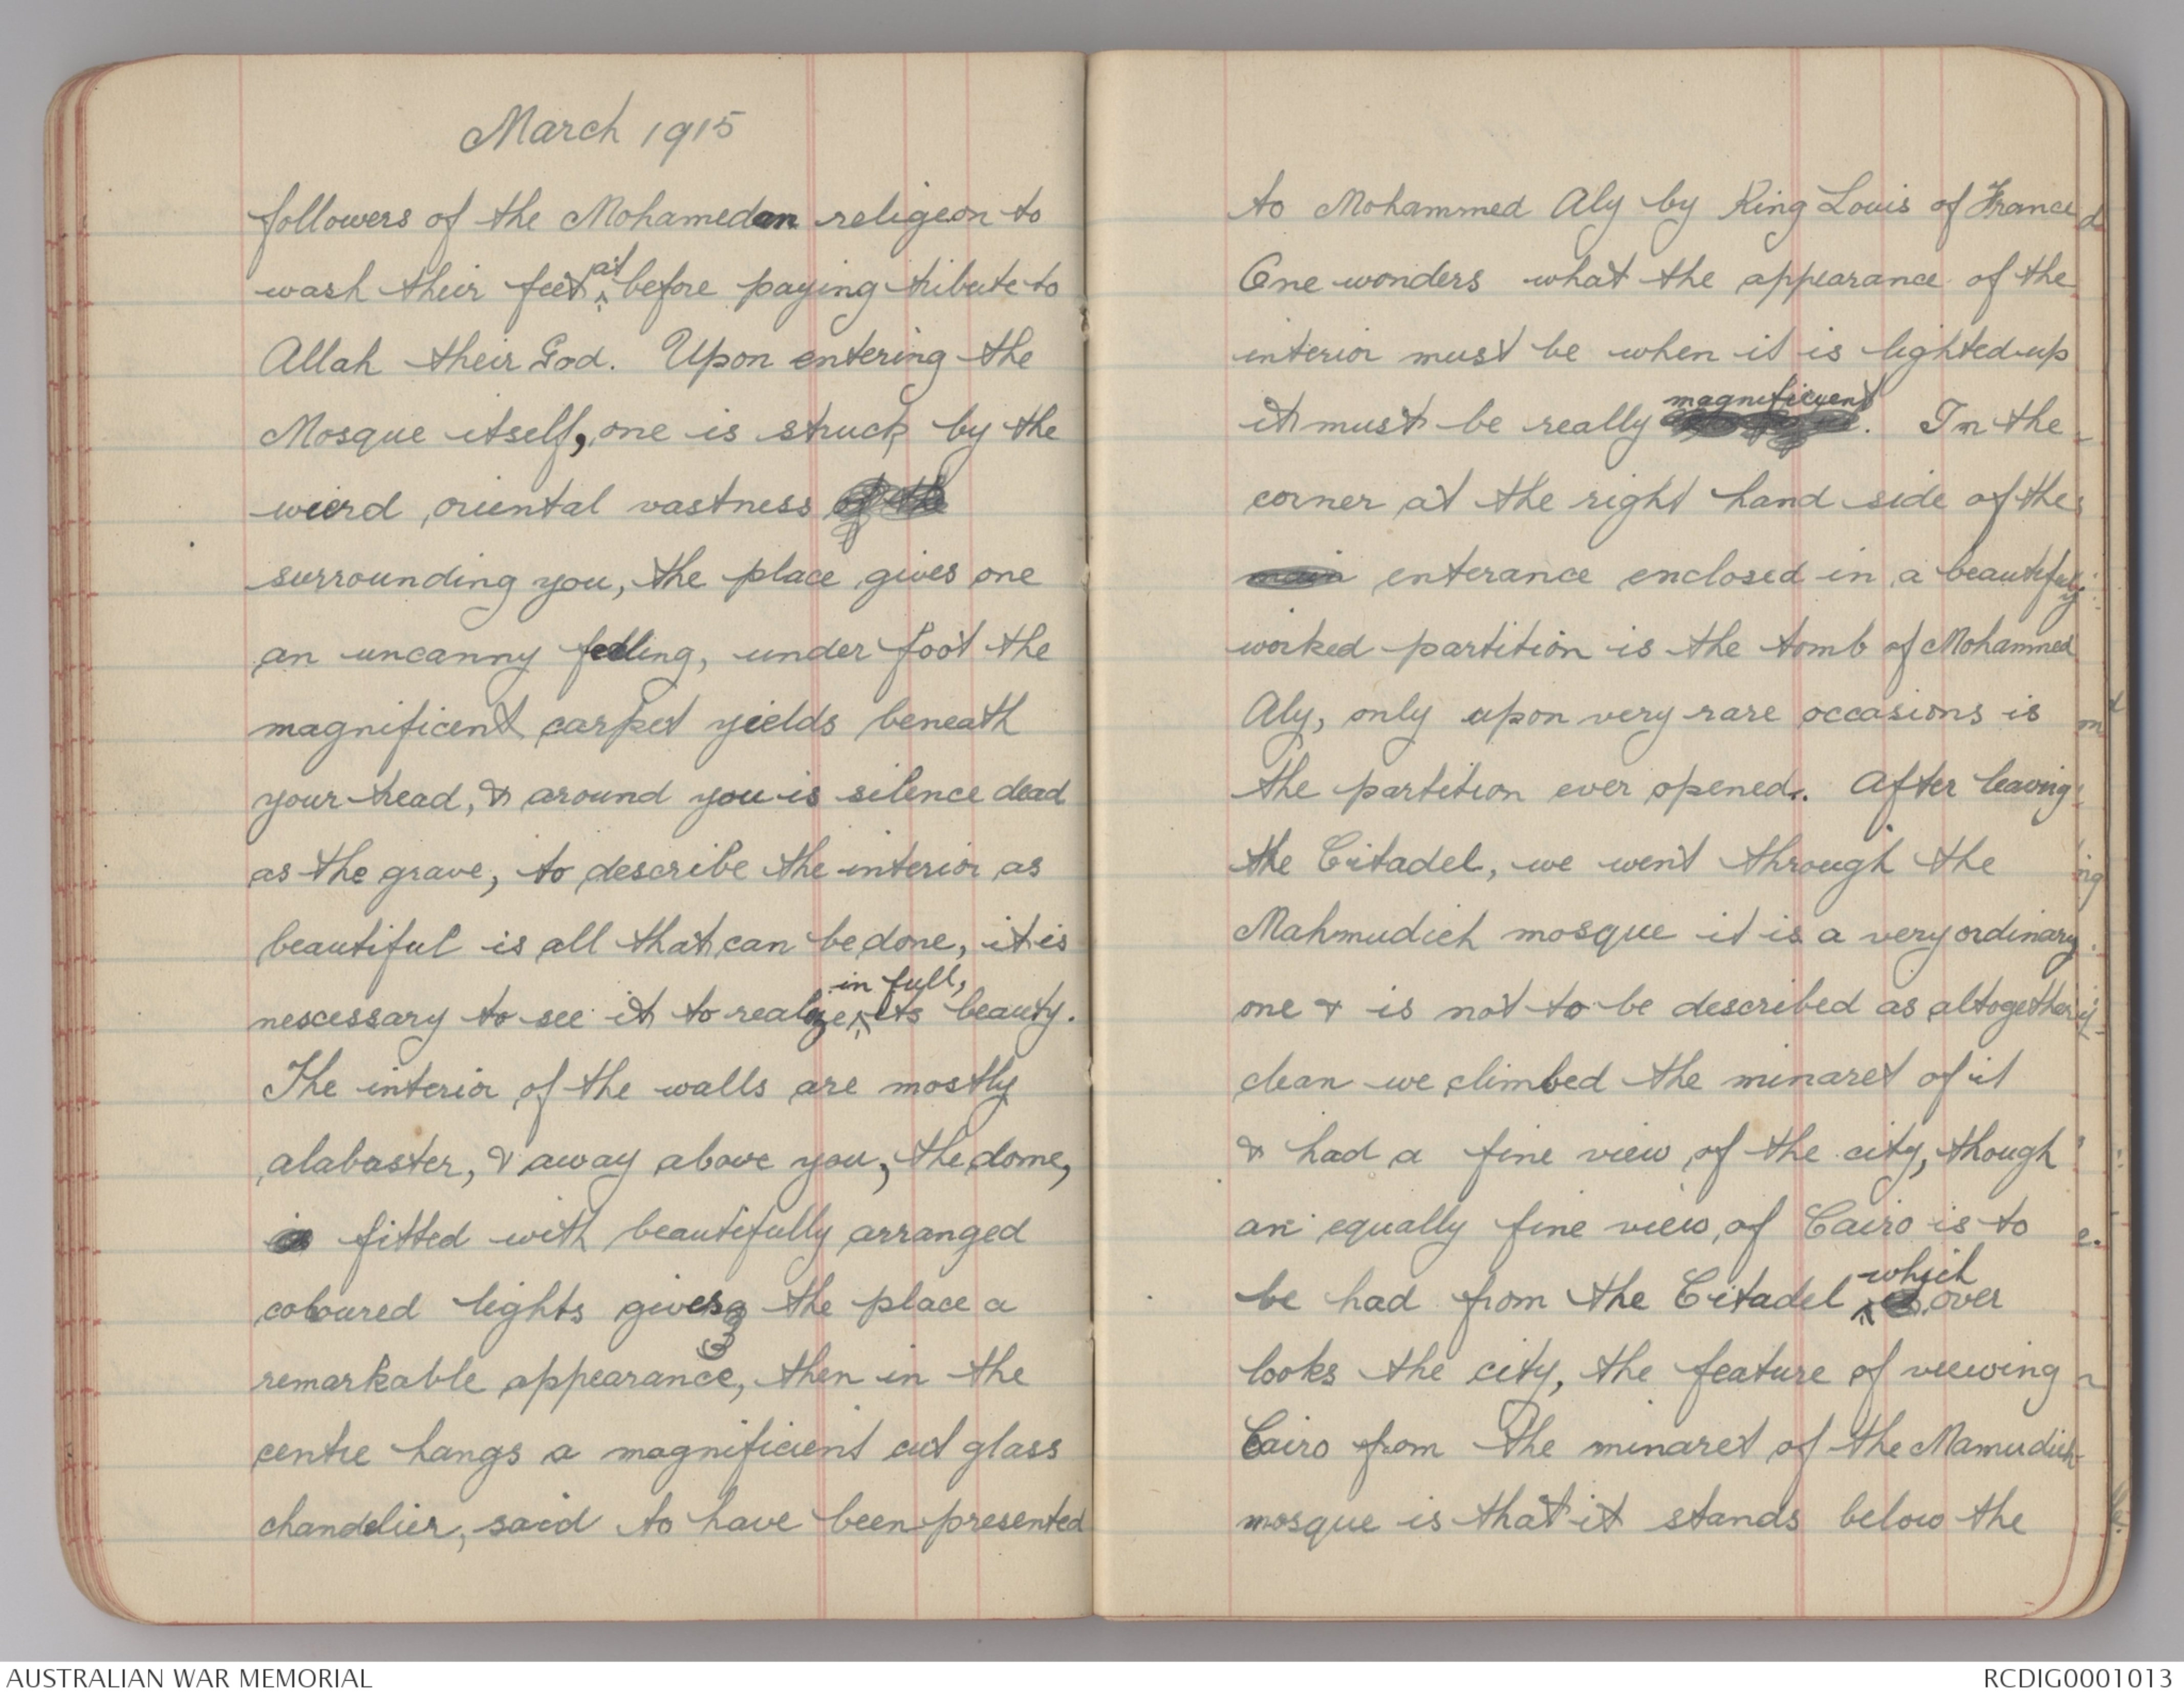 March 1915
followers of the Mohamedan religeon to
wash their feet at before paying tribute to
Allah their God. Upon entering the
Mosque itself, one is struck by the
wierd, oriental vastness of the
surrounding you, the place gives one
an uncanny feeling, under foot the
magnificent carpet yields beneath
your tread, & around you is silence dead
as the grave, to describe the interior as
beautiful is all that can be done, it is
nescessary to see it to realize in full, its beauty.
The interior of the walls are mostly
alabaster, & away above you, the dome,
is fitted with beautifully arranged
coloured lights gives the place a
remarkable appearance, then in the
centre hangs a magnificient cut glass
chandelier, said to have been presented
to Mohammed Aly by King Louis of France
One wonders what the appearance of the
interior must be when it is lighted up
it must be really magnificent. In the
corner at the right hand side of the
main enterance enclosed in a beautifuly
worked partition is the tomb of Mohammed
Aly, only upon very rare occasions is
the partition ever opened. After leaving
the Citadel, we went through the
Mahmudieh mosque it is a very ordinary
one & is not to be described as altogether
clean we climbed the minaret of it
& had a fine view of the city, though
an equally fine view, of Cairo is to
be had from the Citadel which over
looks the city, the feature of viewing
Cairo from the minaret of the Mamudieh
mosque is that it stands below the
AUSTRALIAN WAR MEMORIAL
RCDIG0001013